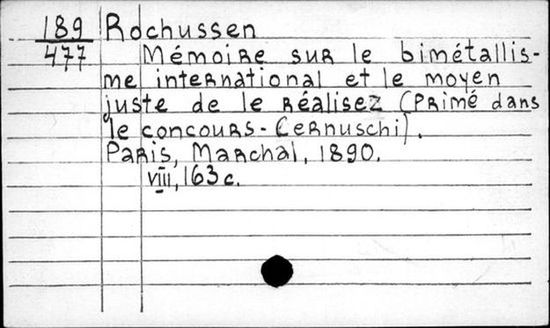 189 Rochussen
477 Mémoire sur le bimétallis-
me international et le moyen
juste de le réalisez (Primé dans
le concours-Cernuschi).
Paris, Marchal, 1890.
VIII, 163 c.